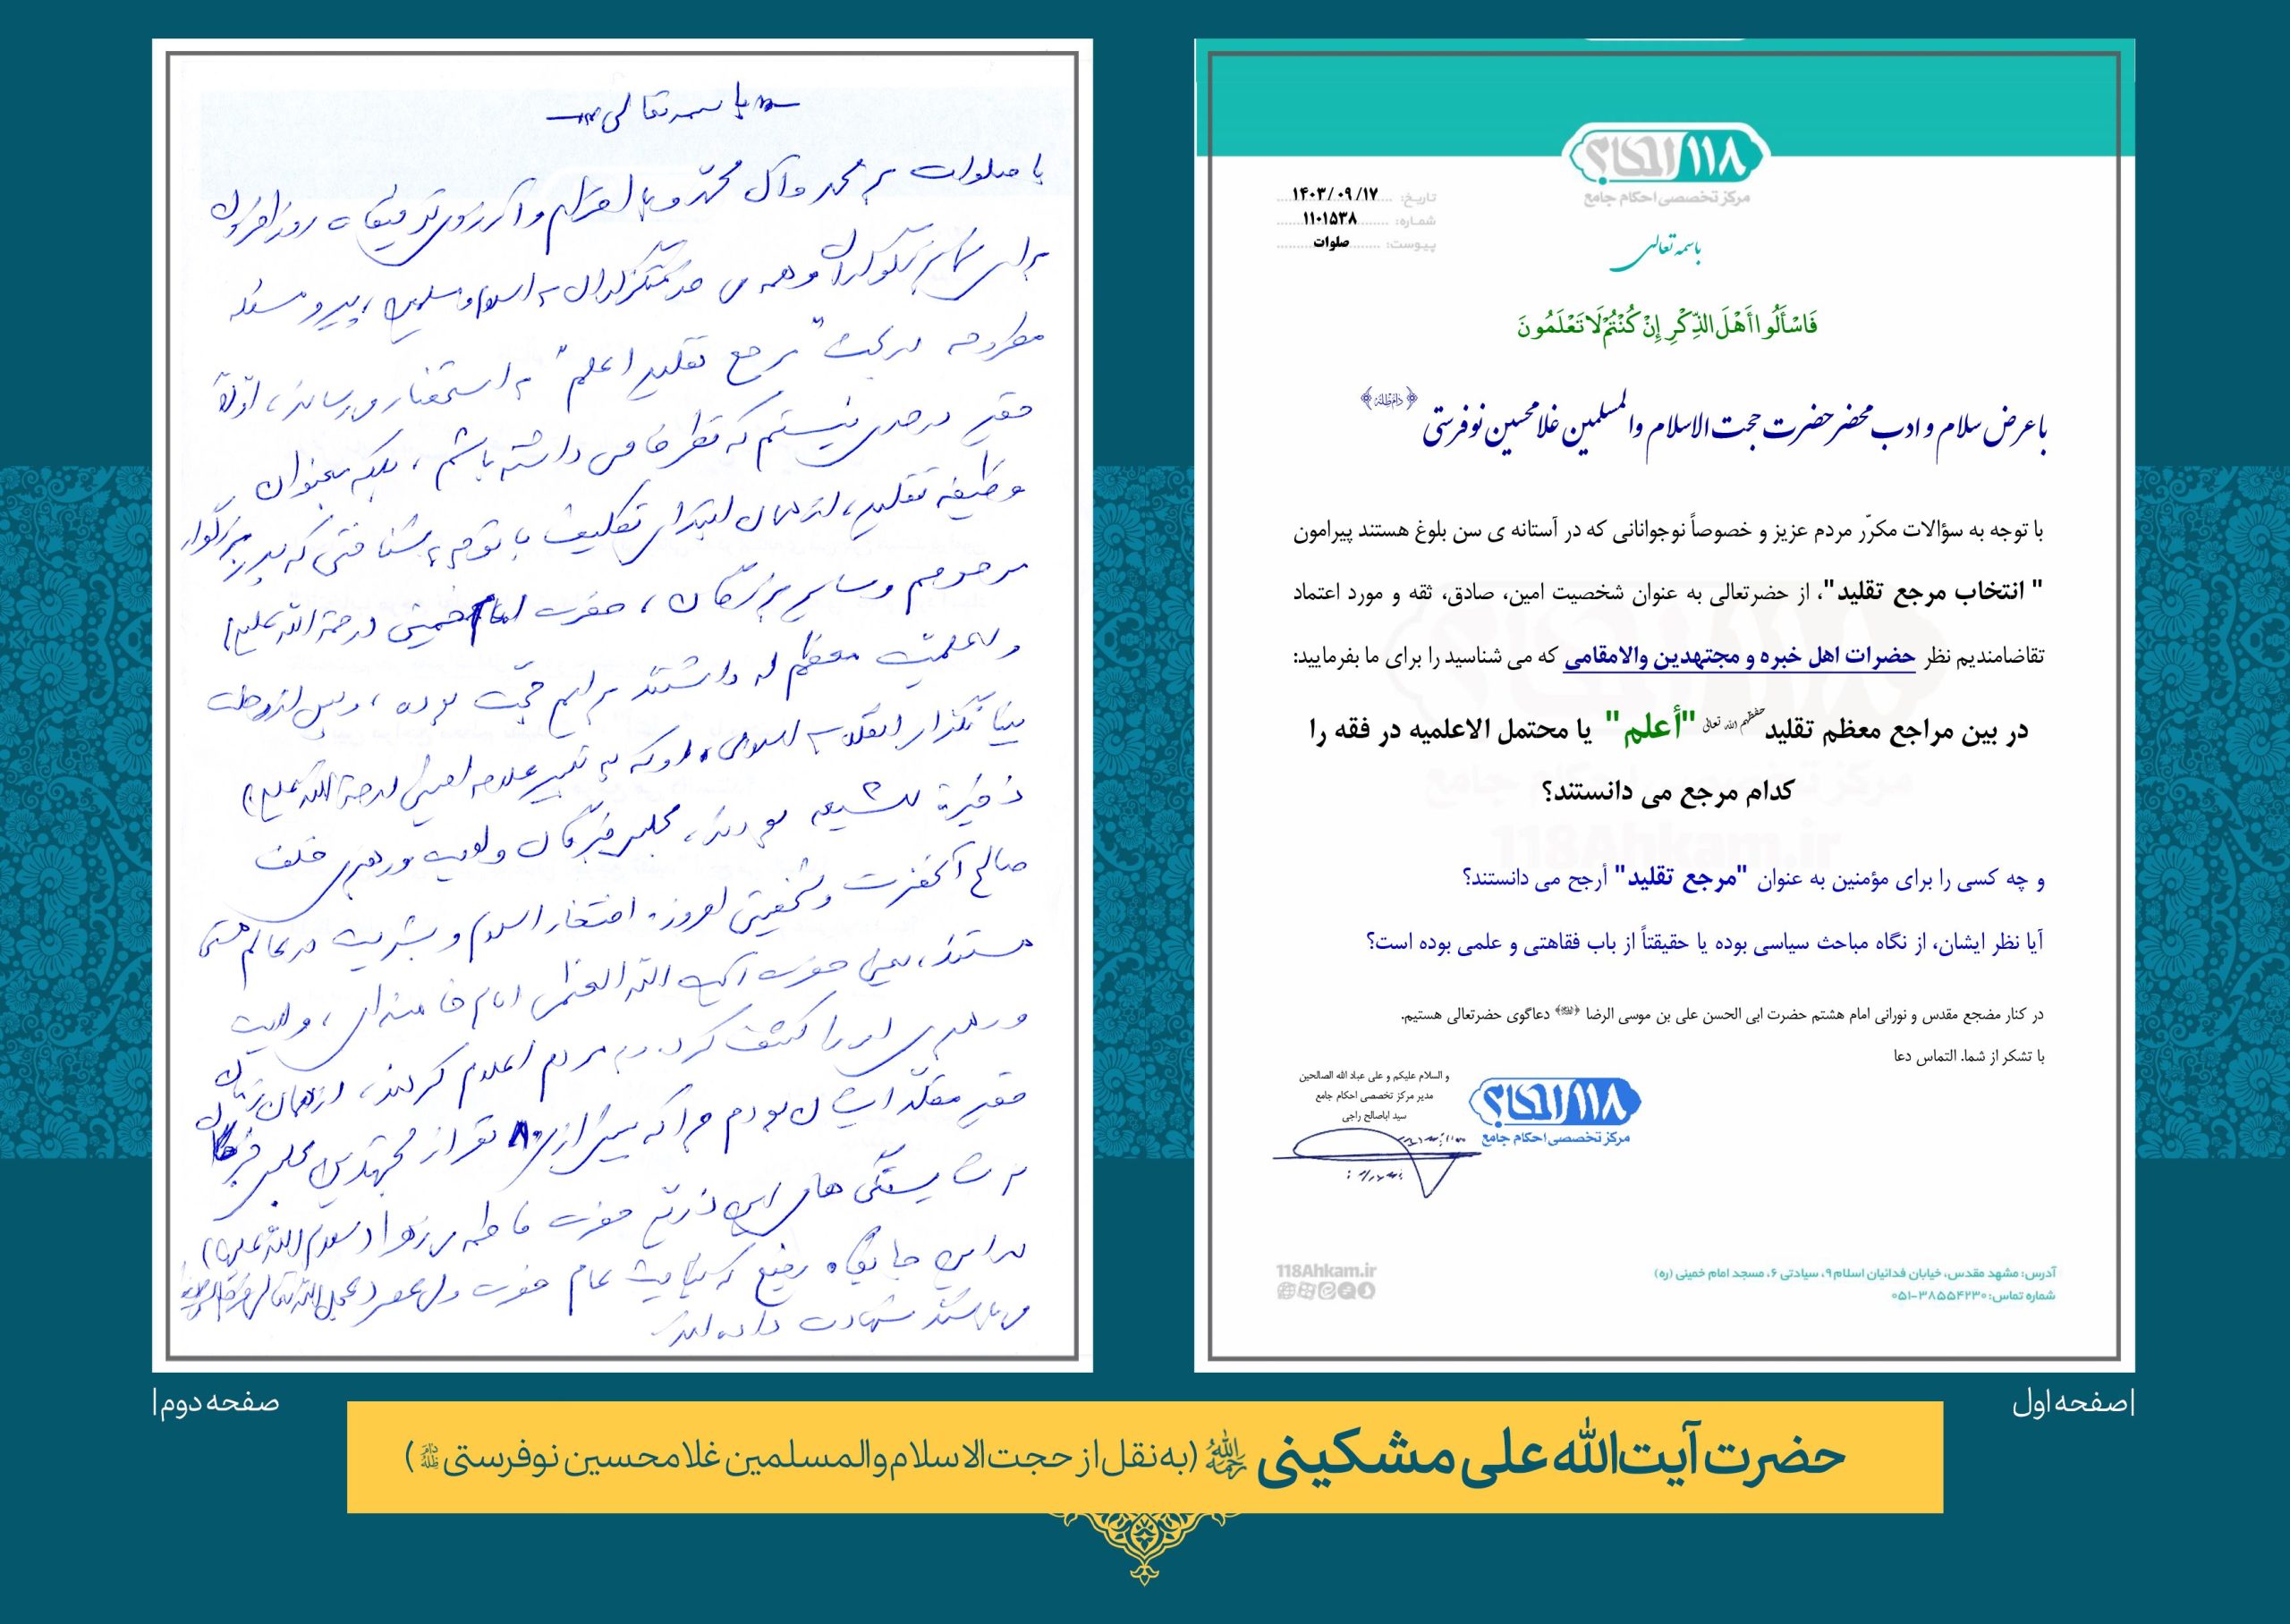 ۱۱۸ احکام؟
مرکز تخصصی احکام جامع
تاریخ: ۱۴۰۳/۰۹/۱۷
شماره: ۱۱۰۱۵۳۸
پیوست: صلوات
باسمه تعالی
فَاسْأَلُوا أَهْلَ الذِّكْرِ إِنْ كُنْتُمْ لَا تَعْلَمُونَ
با عرض سلام و ادب محضر حضرت حجت الاسلام والمسلمین غلامحسین نوفرستی ﴿دام ظله﴾
با توجه به سؤالات مکرّر مردم عزیز و خصوصاً نوجوانانی که در آستانه ی سن بلوغ هستند پیرامون
" انتخاب مرجع تقلید"، از حضرتعالی به عنوان شخصیت امین، صادق، ثقه و مورد اعتماد
تقاضامندیم نظر حضرات اهل خبره و مجتهدین والامقامی که می شناسید را برای ما بفرمایید:
در بین مراجع معظم تقلید حفظهم الله تعالی "أعلم" یا محتمل الاعلمیه در فقه را
کدام مرجع می دانستند؟
و چه کسی را برای مؤمنین به عنوان "مرجع تقلید" أرجح می دانستند؟
آیا نظر ایشان، از نگاه مباحث سیاسی بوده یا حقیقتاً از باب فقاهتی و علمی بوده است؟
در کنار مضجع مقدس و نورانی امام هشتم حضرت ابی الحسن علی بن موسی الرضا دعاگوی حضرتعالی هستیم.
با تشکر از شما. التماس دعا
و السلام علیکم و علی عباد الله الصالحین
مدیر مرکز تخصصی احکام جامع
سید اباصالح راجی
۱۱۸ احکام؟
مرکز تخصصی احکام جامع
118Ahkam.ir
آدرس: مشهد مقدس، خیابان فدائیان اسلام ۹، سیادتی ۶، مسجد امام خمینی (ره)
شماره تماس: ۳۸۵۵۴۲۳۰-۰۵۱
مرکز تخصصی احکام جامع
118Ahkam.ir
صفحه اول
باسمه تعالی
با صلوات بر محمد و آل محمد و با احترام و آرزوی توفیقات روزافزون
برای شما بزرگواران و همه ی خدمتگزاران به اسلام و مسلمین، پیرو مسئله
مطروحه در بحث "مرجع تقلید اعلم" به استحضار می رساند، اوّلاً
حقیر در حدی نیستم که نظر خاصی داشته باشم، بلکه بعنوان
وظیفه تقلید، از همان ابتدای تکلیف با توجه به شناختی که پدر بزرگوار
مرحومم و سایر بزرگان، حضرت امام خمینی (رحمة الله علیه)
و اعلمیت معظم له داشتند برایم حجّت بوده، و پس از رحلت
بنیانگذار انقلاب اسلامی، او که به تعبیر علامه امینی (رحمة الله علیه)
ذخیرة للشیعه بودند، مجلس خبرگان ولایت و رهبری خلف
صالح آنحضرت و شخصیتی که امروز افتخار اسلام و بشریت در عالم هستی
هستند، یعنی حضرت آیت الله العظمی امام خامنه ای، ولایت
و رهبری او را کشف کرده و به مردم اعلام کردند، از همان زمان
حقیر مقلد ایشان بودم چرا که بیش از ۸۰ نفر از مجتهدین مجلس خبرگان
به شایستگی های این ذریّه حضرت فاطمه ی زهرا (سلام الله علیها)
در این جایگاه رفیع که نیابت عام حضرت ولی عصر (عجل الله تعالی فرجه الشریف)
می باشند شهادت داده اند.
صفحه دوم
حضرت آیت الله علی مشکینی رحمه الله (به نقل از حجت الاسلام والمسلمین غلامحسین نوفرستی دام ظله)